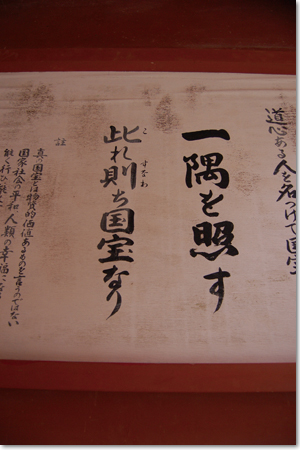 道心ある人を名づけて国宝
一隅を照す
此れ則ち国宝なり
こ すなわ
註
真の国宝とは物質的価値あるものを言うのではない
国家社会の平和 人類の幸福に
能く行い